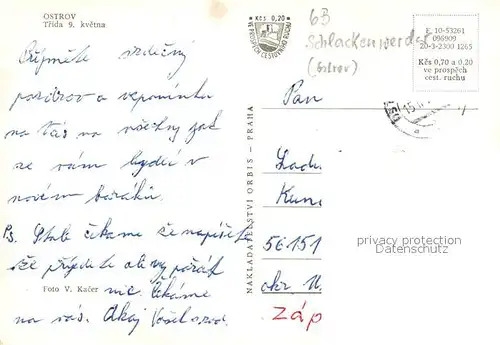 OSTROV
Třída 9. května
Kčs 0,20
VE PROSPĚCH CESTOVNÍHO RUCHU
63
Schlackenwerder
(Ostrov)
F 10-53261
096909
20-3-2300 1265
Kčs 0,70 a 0,20
ve prospěch
cest. ruchu
Přijměte srdečný
pozdrav a vzpomínku
na Vás na všechny jak
se vám bydlí v
novém baráku.
Ps. Stále čekáme že napíšete
že přijdete ale vy pořád
nic. Čekáme
na vás. Ahoj
Foto V. Kačer
NAKLADATELSTVÍ ORBIS - PRAHA
Pan
Lad
56151
okr. U
Záp
privacy protection
Datenschutz